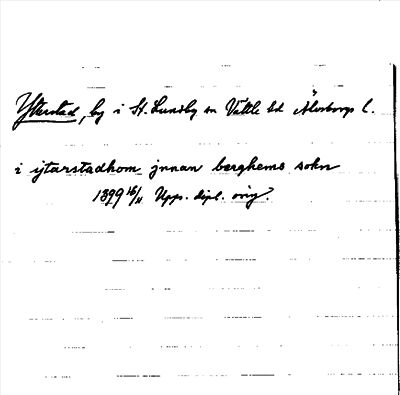 Ytterstad, by i St. Lundby sn Vättle hd Älvsborgs l.
i ytarstadhom jnnan berghems sokn
1399 16/11 Upps. dipl. orig.